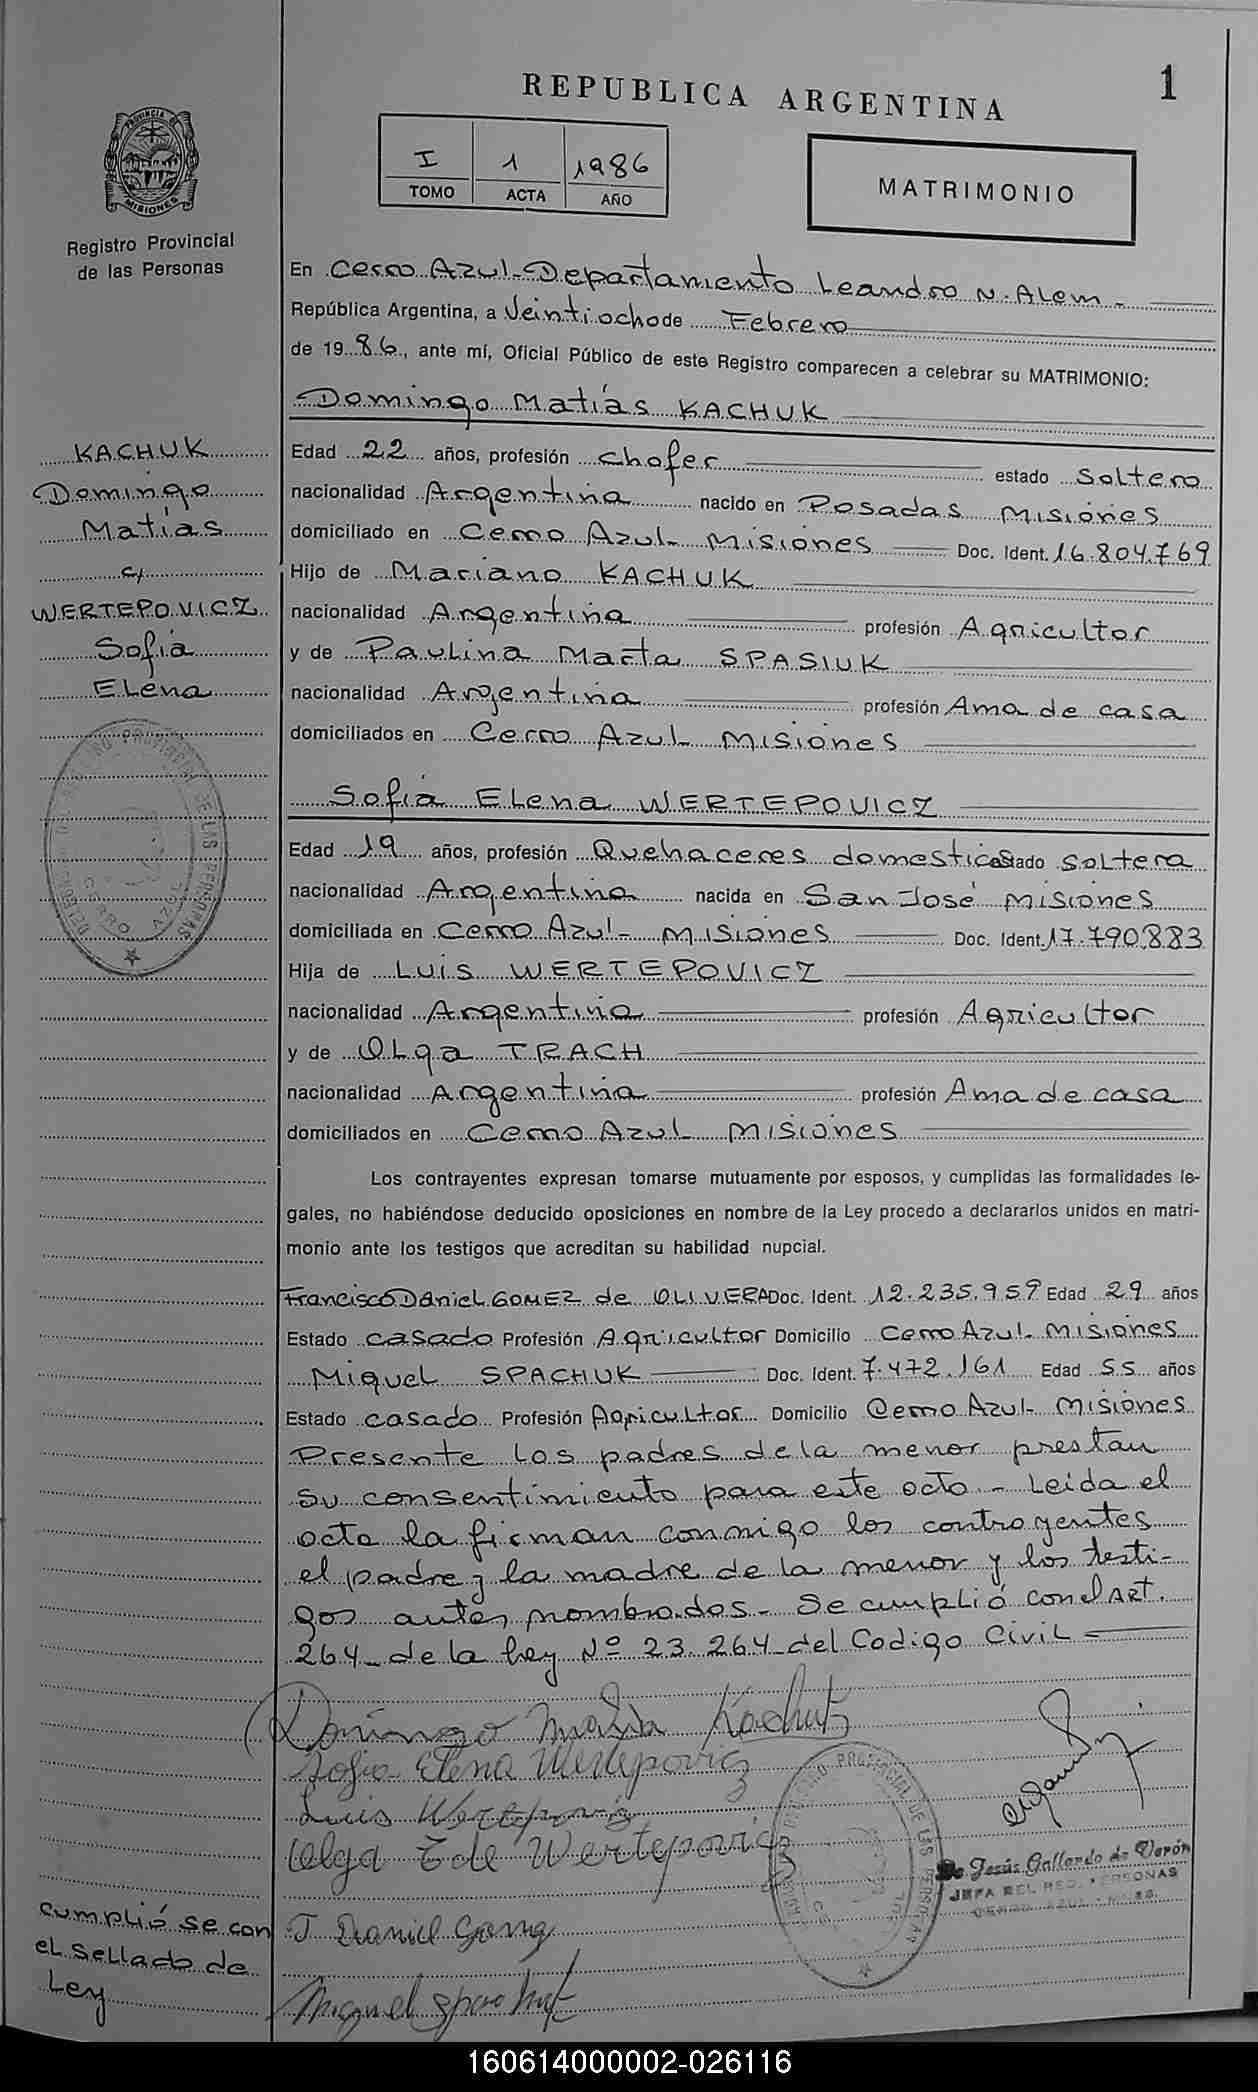 REPUBLICA ARGENTINA
1
PROVINCIA DE
MISIONES
Registro Provincial
de las Personas
I 1 1986
TOMO ACTA AÑO
MATRIMONIO
En Cerro Azul-Departamento Leandro N. Alem-
República Argentina, a Veintiocho de Febrero
de 1986, ante mí, Oficial Público de este Registro comparecen a celebrar su MATRIMONIO:
Domingo Matías KACHUK
KACHUK
Domingo
Matías
c/
WERTEPOVICZ
Sofia
Elena
Edad 22 años, profesión chofer estado soltero
nacionalidad Argentina nacido en Posadas Misiones
domiciliado en Cerro Azul- Misiones Doc. Ident. 16.804.769
Hijo de Mariano KACHUK
nacionalidad Argentina profesión Agricultor
y de Paulina Marta SPASIUK
nacionalidad Argentina profesión Ama de casa
domiciliados en Cerro Azul Misiones
Sofia Elena WERTEPOVICZ
Edad 19 años, profesión Quehaceres domesticos estado soltera
nacionalidad Argentina nacida en San José Misiones
domiciliada en Cerro Azul- Misiones Doc. Ident. 17.790.883
Hija de Luis WERTEPOVICZ
nacionalidad Argentina profesión Agricultor
y de OLga TRACH
nacionalidad Argentina profesión Ama de casa
domiciliados en Cerro Azul Misiones
Los contrayentes expresan tomarse mutuamente por esposos, y cumplidas las formalidades le-
gales, no habiéndose deducido oposiciones en nombre de la Ley procedo a declararlos unidos en matri-
monio ante los testigos que acreditan su habilidad nupcial.
Francisco Daniel GOMEZ de OLIVERA Doc. Ident. 12.235.959 Edad 29 años
Estado casado Profesión Agricultor Domicilio Cerro Azul- Misiones
Miguel SPACHUK Doc. Ident. 7.472.161 Edad 55 años
Estado casado Profesión Agricultor Domicilio Cerro Azul- Misiones
Presente los padres de la menor prestan
su consentimiento para este acto.- Leida el
acta la firman conmigo los contrayentes
el padre y la madre de la menor y los testi-
gos antes nombrados- Se cumplió con el ART.
264- de la Ley Nº 23.264- del Codigo Civil-
Domingo Matia Kachuk
Sofia Elena Wertepovicz
Luis Wertepovicz
Olga T de Wertepovicz
De Jesús Gallardo de Verón
JEFA DEL REG. PERSONAS
CERRO AZUL - MNES.
F Daniel Gomez
Miguel Spachuk
cumplió se con
el sellado de
Ley
REGISTRO PROVINCIAL DE LAS PERSONAS
CERRO AZUL
160614000002-026116